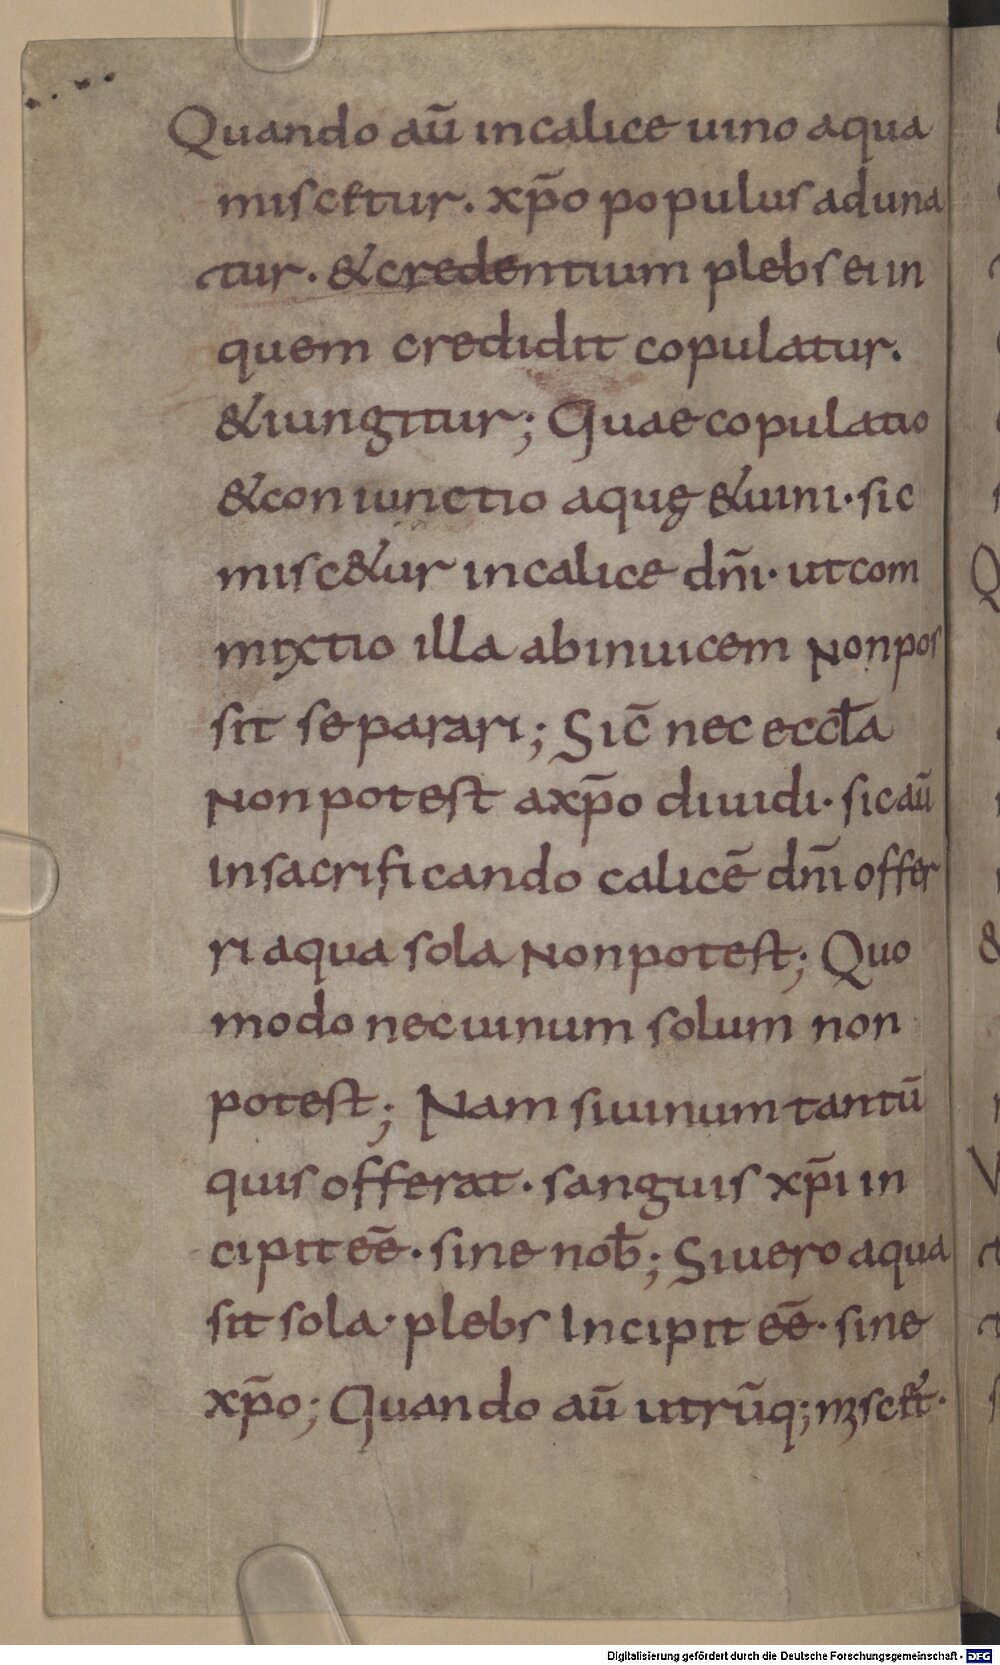 Quando aū in calice uino aqua
miscetur. xp̄o populus aduna
tur. & credentium plebs ei in
quem credidit copulatur.
& iungitur; Quae copulatio
& coniunctio aquę & uini· sic
misc&ur in calice dn̄i· ut com
mixtio illa abinuicem Non pos
sit separari; Sic̄ nec eccl̄a
Non potest a xp̄o diuidi· sic aū
In sacrificando calicē dn̄i offer
ri aqua sola Non potest; Quo
modo nec uinum solum non
potest; Nam si uinum tantū
quis offerat· sanguis xp̄i in
cipit eē· sine nob̄; Si uero aqua
sit sola· plebs Incipit eē· sine
xp̄o; Quando aū utrūq; miscet᷑·
Digitalisierung gefördert durch die Deutsche Forschungsgemeinschaft - DFG